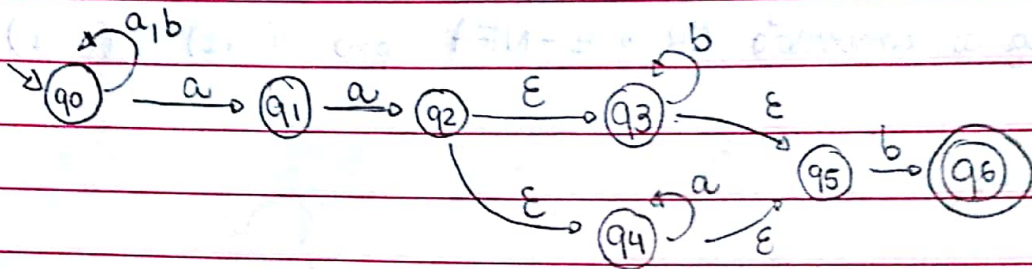 a,b
b
q0 a q1 a q2 ε q3 ε
q5 b q6
ε a
q4 ε